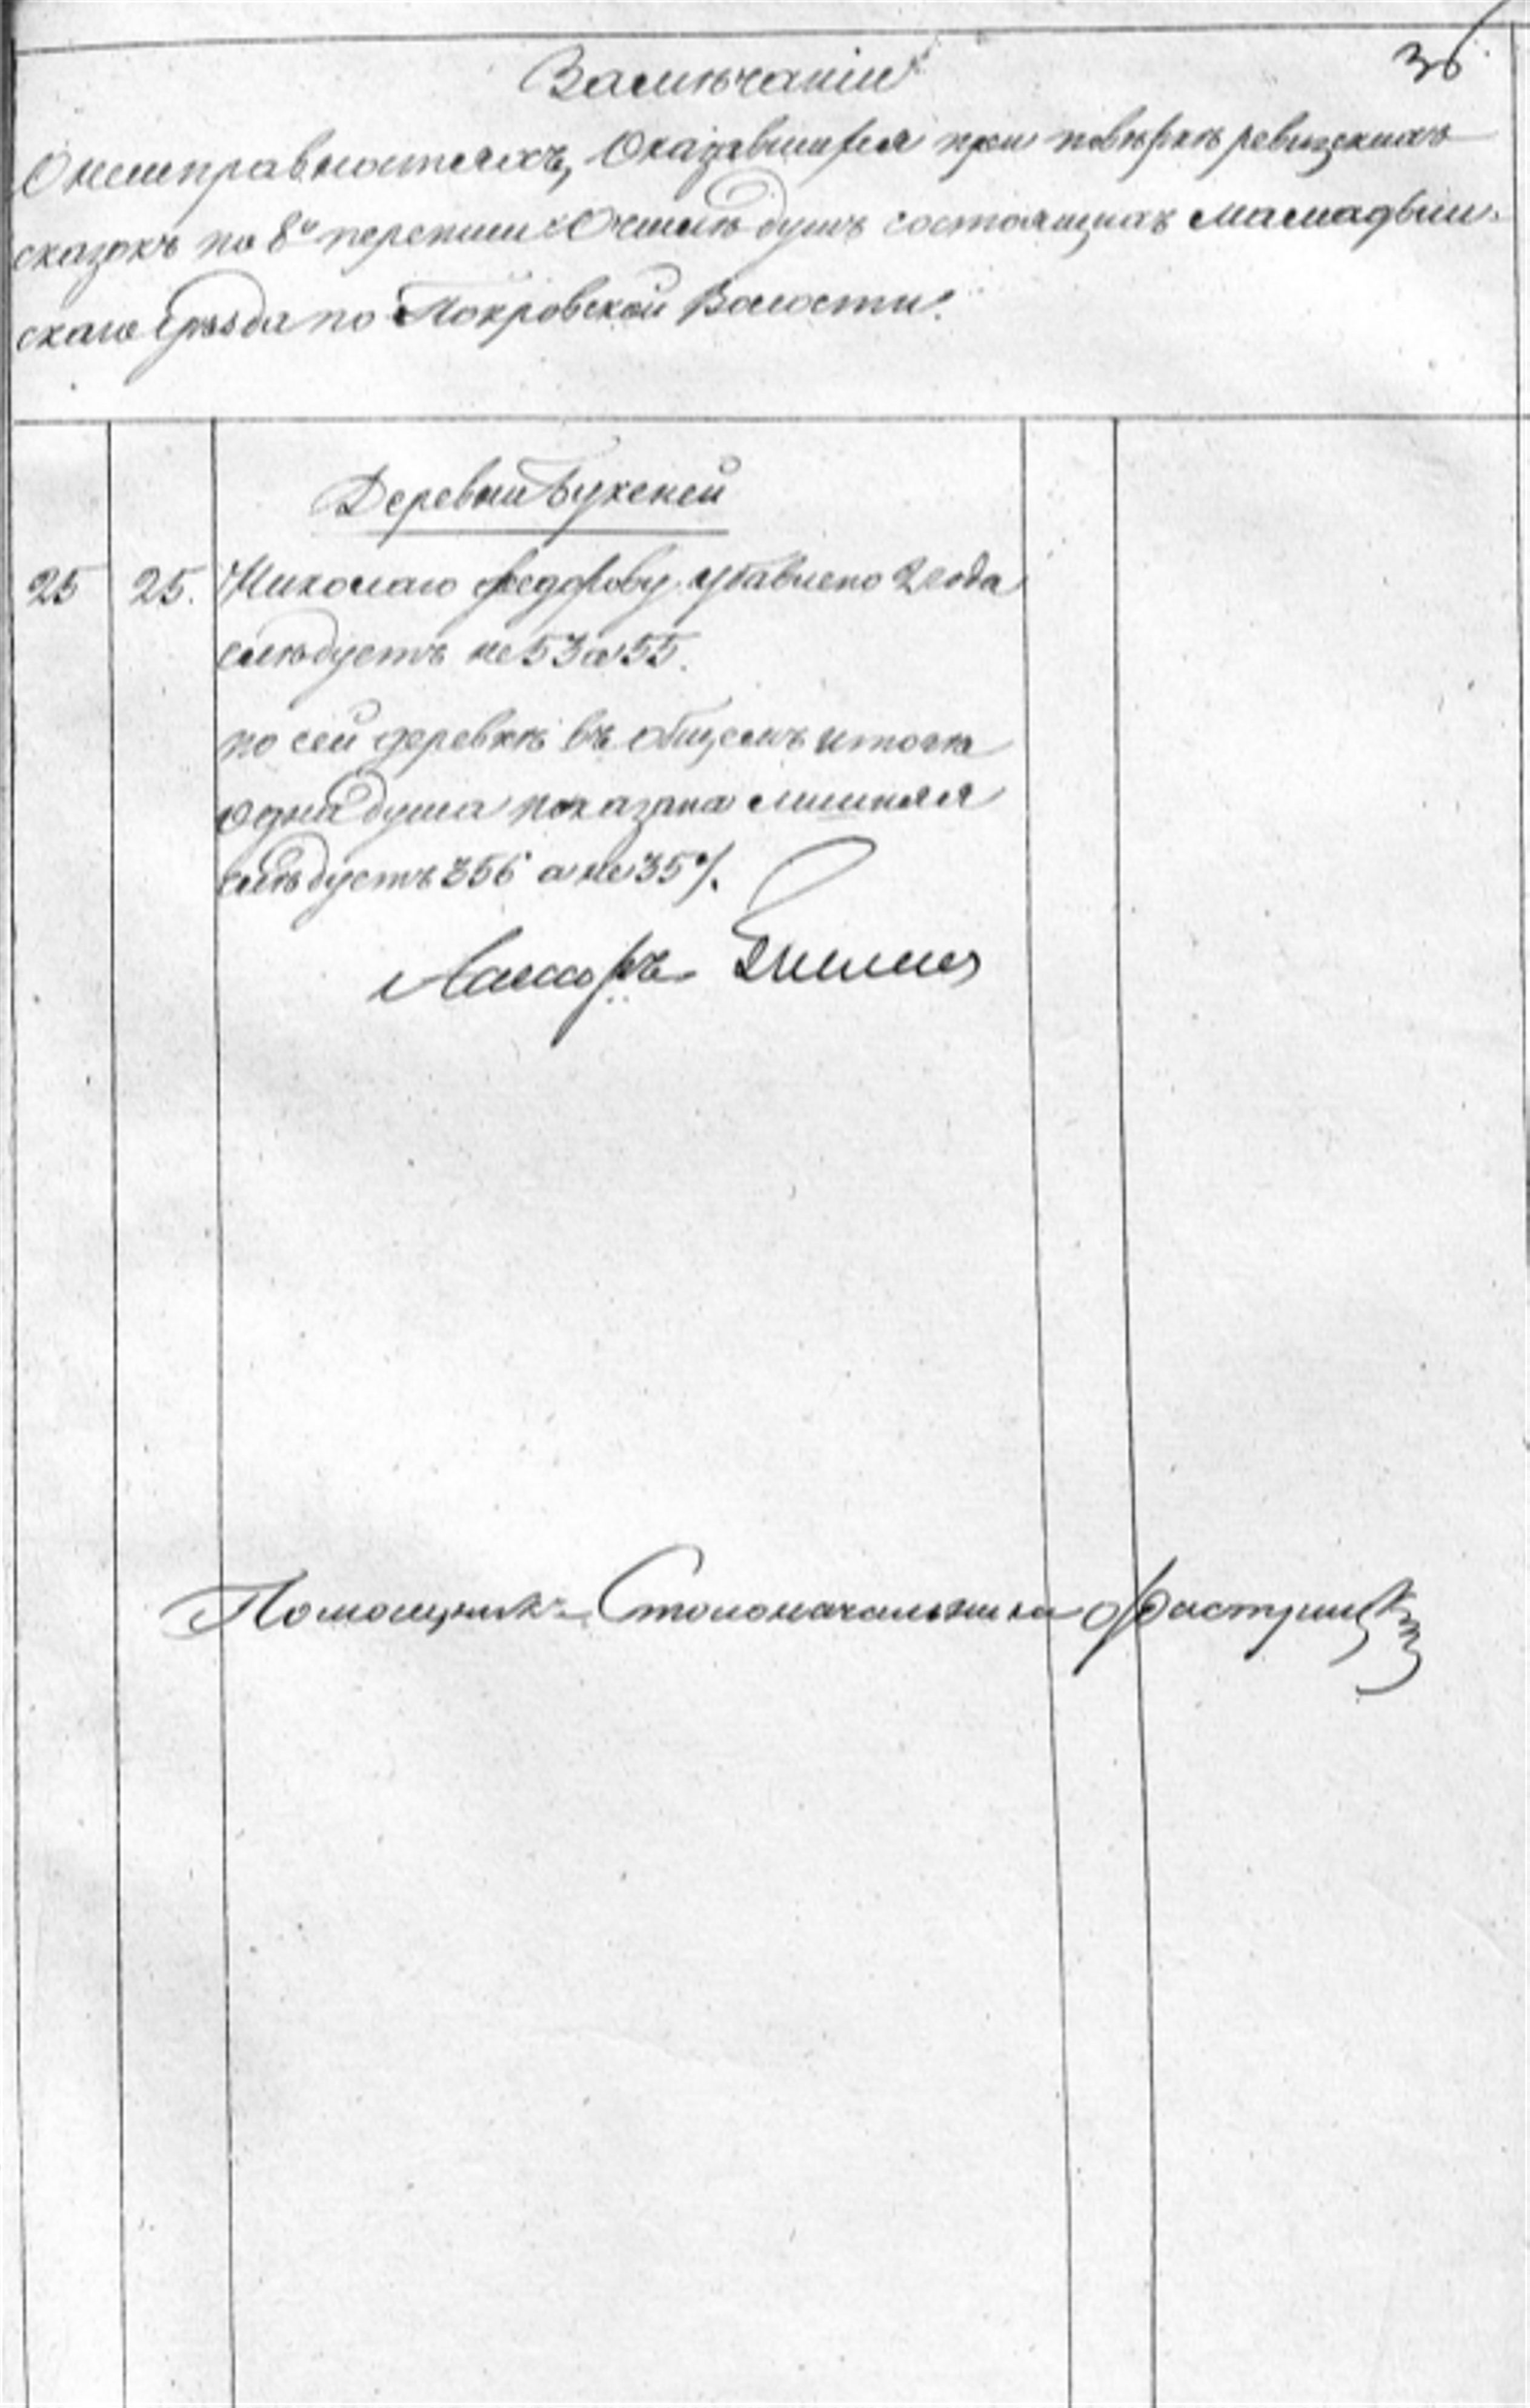 36
Замѣчаніи
О неисправностяхъ, Оказавшихся при повѣркѣ ревизскихъ
сказокъ по 8й переписи О числѣ душъ состоящихъ Мамадыш-
скаго Уѣзда по Покровской Волости.
Деревни Букеней
25 25. Николаю Федорову убавлено 2 года
слѣдуетъ не 53 а 55.
по сей деревнѣ въ общемъ итогѣ
одна душа показана лишняя
слѣдуетъ 356 а не 357.
Помощникъ Столоначальника